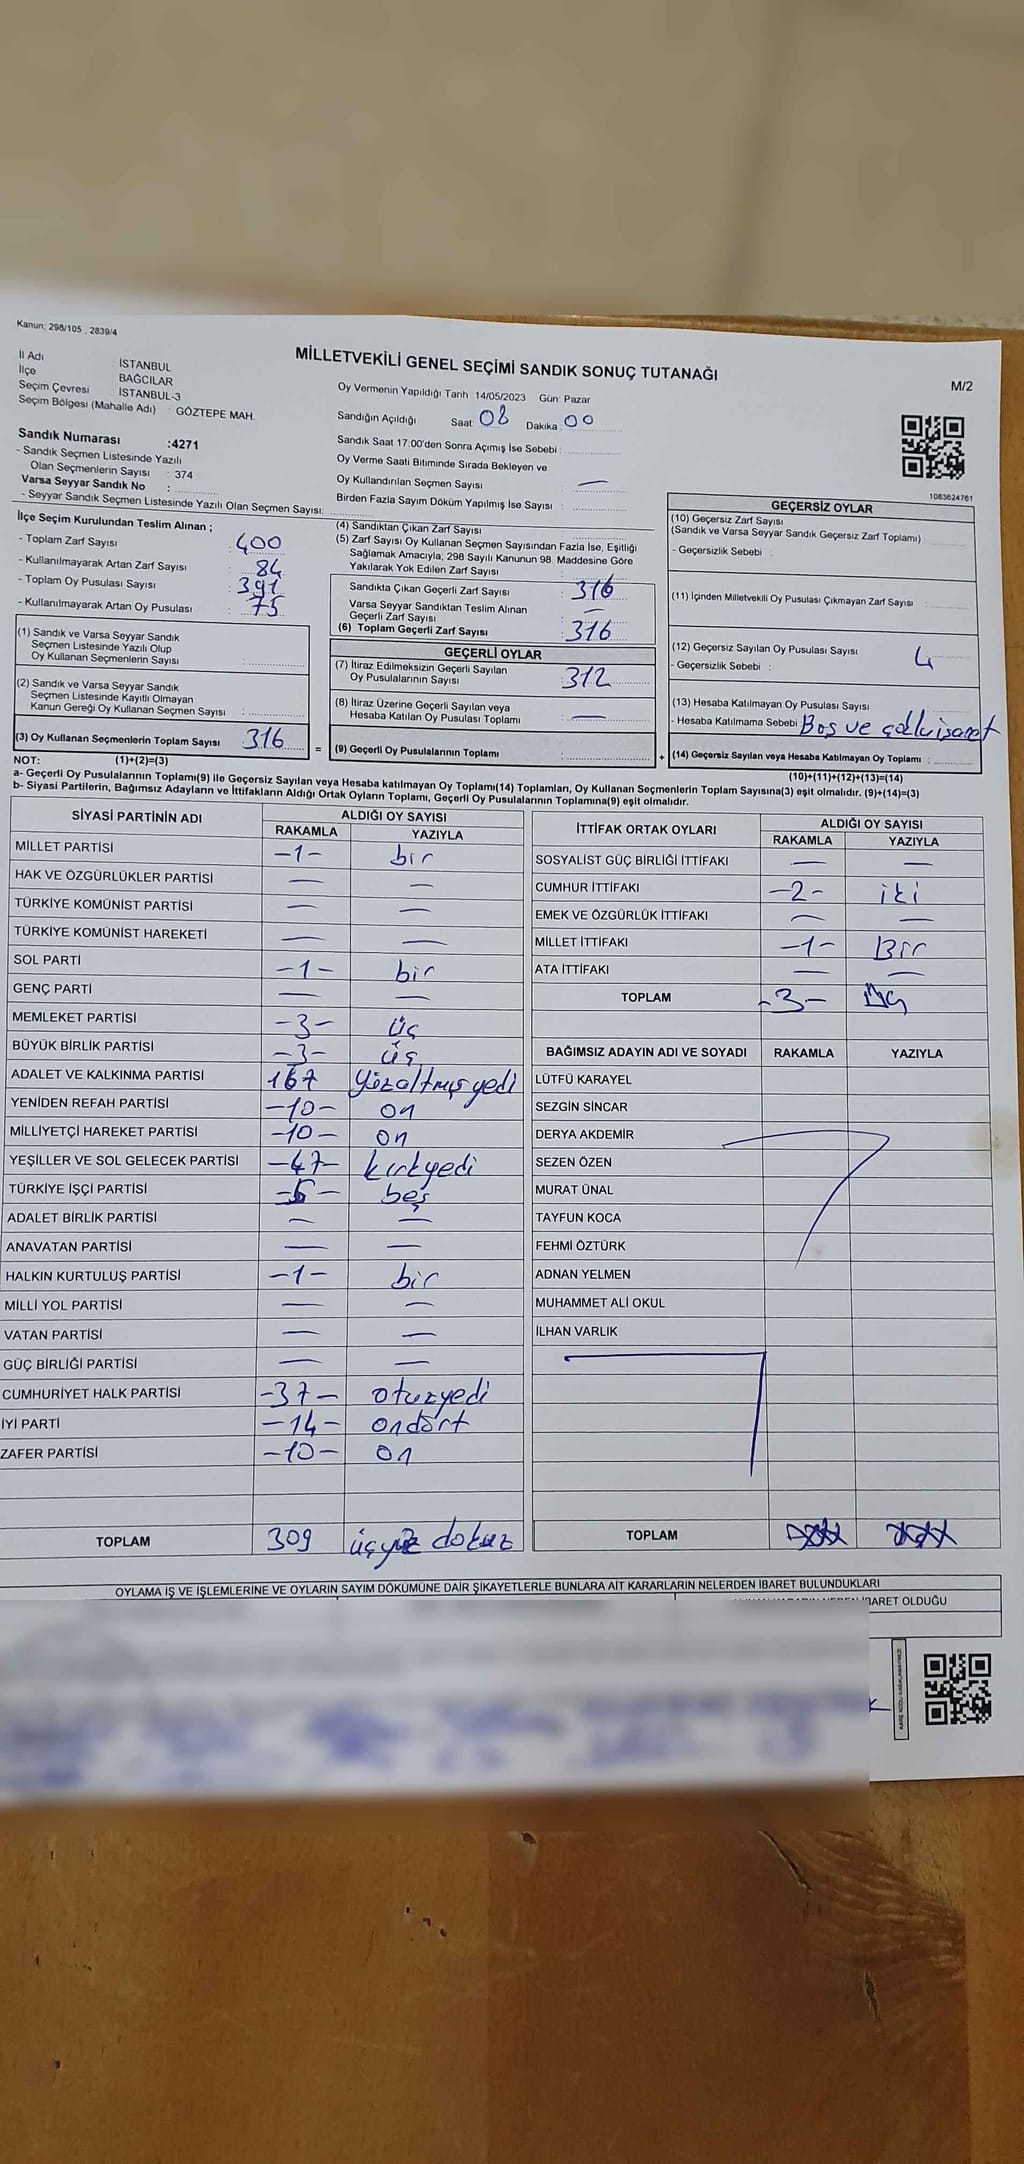 Kanun; 298/105 , 2839/4
MİLLETVEKİLİ GENEL SEÇİMİ SANDIK SONUÇ TUTANAĞI
M/2
İl Adı İSTANBUL
İlçe BAĞCILAR
Seçim Çevresi İSTANBUL-3
Seçim Bölgesi (Mahalle Adı) : GÖZTEPE MAH.
Sandık Numarası :4271
- Sandık Seçmen Listesinde Yazılı
Olan Seçmenlerin Sayısı : 374
Varsa Seyyar Sandık No :
- Seyyar Sandık Seçmen Listesinde Yazılı Olan Seçmen Sayısı:
Oy Vermenin Yapıldığı Tarih 14/05/2023 Gün: Pazar
Sandığın Açıldığı Saat 08 Dakika 00
Sandık Saat 17:00'den Sonra Açımış İse Sebebi :
Oy Verme Saati Bitiminde Sırada Bekleyen ve
Oy Kullandırılan Seçmen Sayısı : —
Birden Fazla Sayım Döküm Yapılmış İse Sayısı :
1083624761
İlçe Seçim Kurulundan Teslim Alınan ;
- Toplam Zarf Sayısı : 400
- Kullanılmayarak Artan Zarf Sayısı : 84
- Toplam Oy Pusulası Sayısı : 391
- Kullanılmayarak Artan Oy Pusulası : 75
(1) Sandık ve Varsa Seyyar Sandık
Seçmen Listesinde Yazılı Olup
Oy Kullanan Seçmenlerin Sayısı :
(2) Sandık ve Varsa Seyyar Sandık
Seçmen Listesinde Kayıtlı Olmayan
Kanun Gereği Oy Kullanan Seçmen Sayısı :
(3) Oy Kullanan Seçmenlerin Toplam Sayısı 316
(4) Sandıktan Çıkan Zarf Sayısı
(5) Zarf Sayısı Oy Kullanan Seçmen Sayısından Fazla İse, Eşitliği
Sağlamak Amacıyla; 298 Sayılı Kanunun 98. Maddesine Göre
Yakılarak Yok Edilen Zarf Sayısı
Sandıkta Çıkan Geçerli Zarf Sayısı : 316
Varsa Seyyar Sandıktan Teslim Alınan
Geçerli Zarf Sayısı : —
(6) Toplam Geçerli Zarf Sayısı : 316
GEÇERLİ OYLAR
(7) İtiraz Edilmeksizin Geçerli Sayılan
Oy Pusulalarının Sayısı : 312
(8) İtiraz Üzerine Geçerli Sayılan veya
Hesaba Katılan Oy Pusulası Toplamı : —
= (9) Geçerli Oy Pusulalarının Toplamı :
GEÇERSİZ OYLAR
(10) Geçersiz Zarf Sayısı
(Sandık ve Varsa Seyyar Sandık Geçersiz Zarf Toplamı)
- Geçersizlik Sebebi :
(11) İçinden Milletvekili Oy Pusulası Çıkmayan Zarf Sayısı :
(12) Geçersiz Sayılan Oy Pusulası Sayısı 4
- Geçersizlik Sebebi :
(13) Hesaba Katılmayan Oy Pusulası Sayısı
- Hesaba Katılmama Sebebi : Boş ve
+ (14) Geçersiz Sayılan veya Hesaba Katılmayan Oy Toplamı :
NOT: (1)+(2)=(3)
(10)+(11)+(12)+(13)=(14)
a- Geçerli Oy Pusulalarının Toplamı(9) ile Geçersiz Sayılan veya Hesaba katılmayan Oy Toplamı(14) Toplamları, Oy Kullanan Seçmenlerin Toplam Sayısına(3) eşit olmalıdır. (9)+(14)=(3)
b- Siyasi Partilerin, Bağımsız Adayların ve İttifakların Aldığı Ortak Oyların Toplamı, Geçerli Oy Pusulalarının Toplamına(9) eşit olmalıdır.
SİYASİ PARTİNİN ADI ALDIĞI OY SAYISI
RAKAMLA YAZIYLA
MİLLET PARTİSİ -1- bir
HAK VE ÖZGÜRLÜKLER PARTİSİ — —
TÜRKİYE KOMÜNİST PARTİSİ — —
TÜRKİYE KOMÜNİST HAREKETİ — —
SOL PARTİ -1- bir
GENÇ PARTİ — —
MEMLEKET PARTİSİ -3- üç
BÜYÜK BİRLİK PARTİSİ -3- üç
ADALET VE KALKINMA PARTİSİ 167 Yüzaltmışyedi
YENİDEN REFAH PARTİSİ -10- on
MİLLİYETÇİ HAREKET PARTİSİ -10- on
YEŞİLLER VE SOL GELECEK PARTİSİ -47- kırkyedi
TÜRKİYE İŞÇİ PARTİSİ -5- beş
ADALET BİRLİK PARTİSİ — —
ANAVATAN PARTİSİ — —
HALKIN KURTULUŞ PARTİSİ -1- bir
MİLLİ YOL PARTİSİ — —
VATAN PARTİSİ — —
GÜÇ BİRLİĞİ PARTİSİ — —
CUMHURİYET HALK PARTİSİ -37- otuzyedi
İYİ PARTİ -14- ondört
ZAFER PARTİSİ -10- on
TOPLAM 309 üçyüz dokuz
İTTİFAK ORTAK OYLARI ALDIĞI OY SAYISI
RAKAMLA YAZIYLA
SOSYALİST GÜÇ BİRLİĞİ İTTİFAKI — —
CUMHUR İTTİFAKI -2- iki
EMEK VE ÖZGÜRLÜK İTTİFAKI — —
MİLLET İTTİFAKI -1- Bir
ATA İTTİFAKI — —
TOPLAM -3- Üç
BAĞIMSIZ ADAYIN ADI VE SOYADI RAKAMLA YAZIYLA
LÜTFÜ KARAYEL
SEZGİN SİNCAR
DERYA AKDEMİR
SEZEN ÖZEN
MURAT ÜNAL
TAYFUN KOCA
FEHMİ ÖZTÜRK
ADNAN YELMEN
MUHAMMET ALİ OKUL
İLHAN VARLIK
TOPLAM
OYLAMA İŞ VE İŞLEMLERİNE VE OYLARIN SAYIM DÖKÜMÜNE DAİR ŞİKAYETLERLE BUNLARA AİT KARARLARIN NELERDEN İBARET BULUNDUKLARI
OLDUĞU